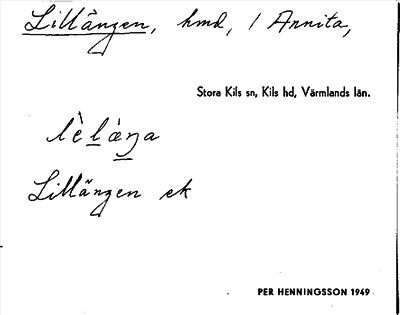 Lillängen, hmd, / Annita,
Stora Kils sn, Kils hd, Värmlands län.
lè l æ̀ŋa
Lillängen ek
PER HENNINGSSON 1949